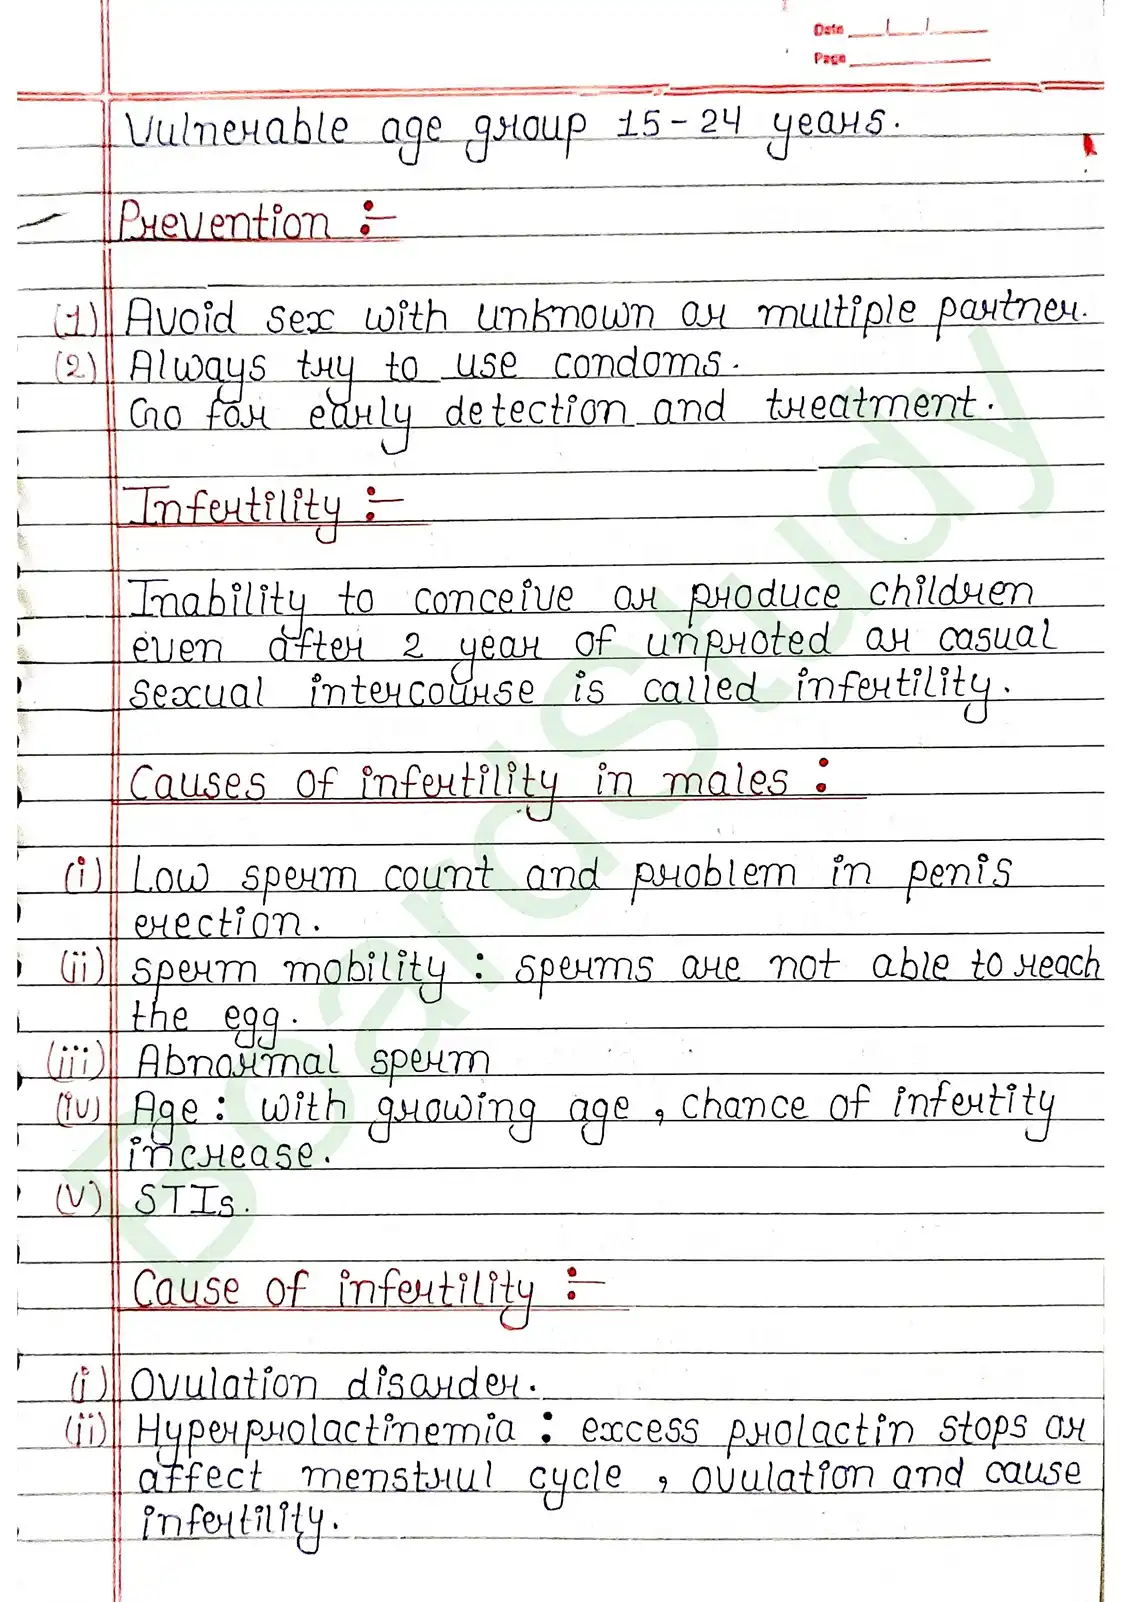 Date
Page
Vulnerable age group 15-24 years.
Prevention :-
(1) Avoid sex with unknown or multiple partner.
(2) Always try to use condoms.
Go for early detection and treatment.
Infertility :-
Inability to conceive or produce children
even after 2 year of unproted or casual
sexual intercourse is called infertility.
Causes of infertility in males :
(i) Low sperm count and problem in penis
erection.
(ii) sperm mobility : sperms are not able to reach
the egg.
(iii) Abnormal sperm
(iv) Age : with growing age , chance of infertity
increase.
(v) STIs.
Cause of infertility :-
(i) Ovulation disorder.
(ii) Hyperprolactinemia : excess prolactin stops or
affect menstrul cycle , ovulation and cause
infertility.
BoardStudy